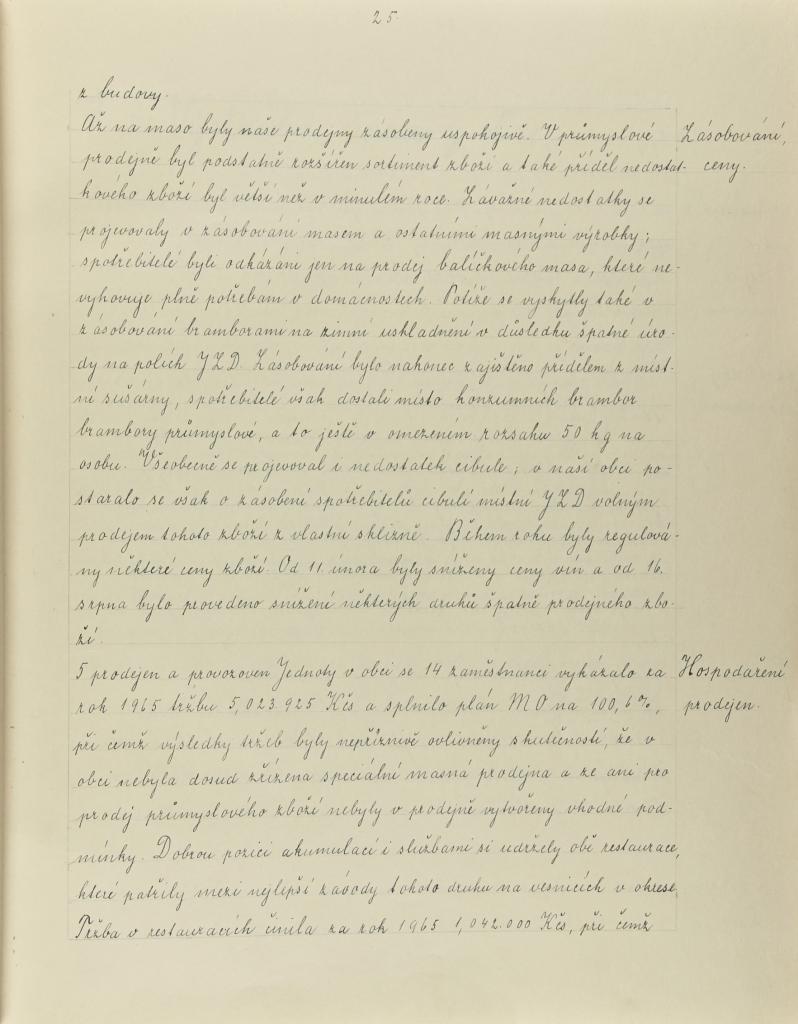 25.
z budovy.
Až na maso byly naše prodejny zásobeny uspokojivě. V průmyslové
Zásobování,
prodejně byl podstatně rozšířen sortiment zboží a také příděl nedostat-
ceny.
kového zboží byl větší než v minulém roce. Závažné nedostatky se
projevovaly v zásobování masem a ostatními masnými výrobky;
spotřebitelé byli odkázáni jen na prodej balíčkového masa, které ne-
vyhovuje plně potřebám v domácnostech. Potíže se vyskytly také v
zásobování bramborami na zimní uskladnění v důsledku špatné úro-
dy na polích JZD. Zásobování bylo nakonec zajištěno přídělem z míst-
ní sušárny, spotřebitelé však dostali místo konzumních brambor
brambory průmyslové, a to ještě v omezeném rozsahu 50 kg na
osobu. Všeobecně se projevoval i nedostatek cibule; v naší obci po-
staralo se však o zásobení spotřebitelů cibulí místní JZD volným
prodejem tohoto zboží z vlastní sklizně. Během roku byly regulová-
ny některé ceny zboží. Od 11. února byly sníženy ceny vín a od 16.
srpna bylo provedeno snížení některých druhů špatně prodejného zbo-
ží.
5 prodejen a provozoven Jednoty v obci se 14 zaměstnanci vykázalo za
Hospodaření
rok 1965 tržbu 5,023.925 Kčs a splnilo plán MO na 100,6%,
prodejen.
při čemž výsledky tržeb byly nepříznivě ovlivněny skutečností, že v
obci nebyla dosud zřízena speciální masná prodejna a že ani pro
prodej průmyslového zboží nebyly v prodejně vytvořeny vhodné pod-
mínky. Dobrou pozici akumulací i službami si udržely obě restaurace,
které patřily mezi nejlepší závody tohoto druhu na vesnicích v okrese.
Tržba v restauracích činila za rok 1965 1,042.000 Kčs, při čemž